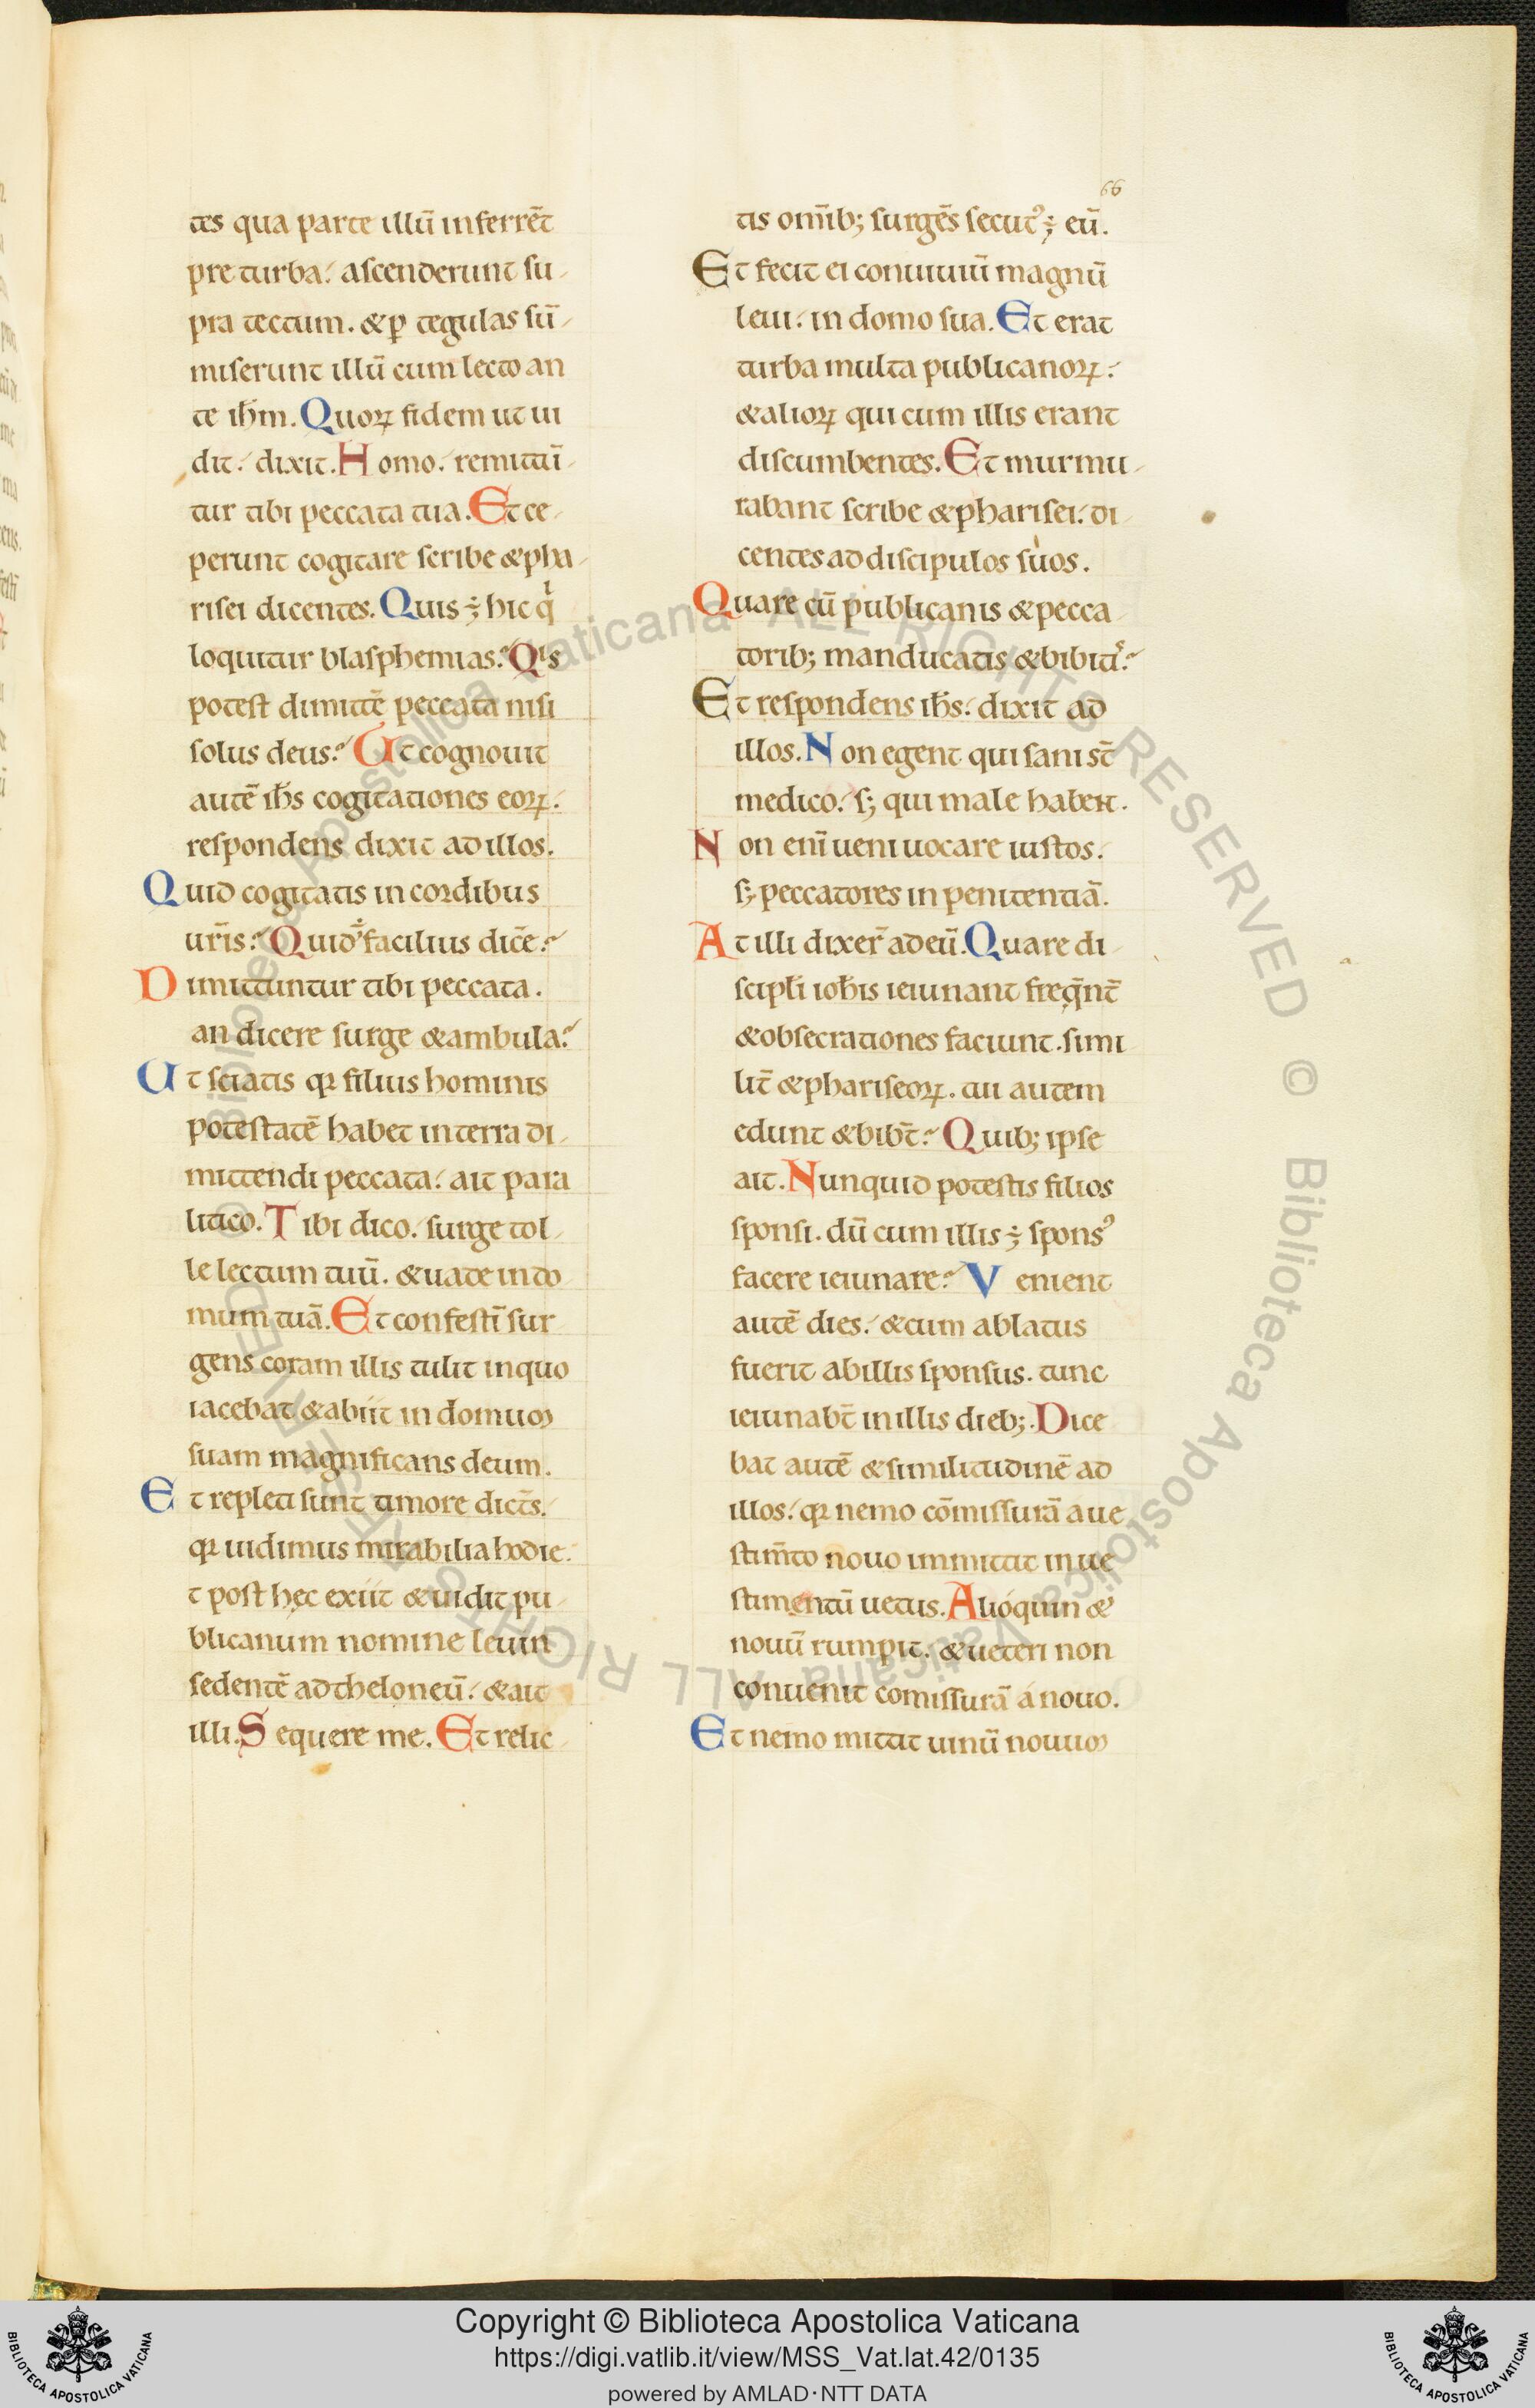 66
tes qua parte illū inferrēt
pre turba. ascenderunt su-
pra tectum. &p tegulas sū-
miserunt illū cum lecto an
te ihm. Quoꝝ fidem ut ui
dit. dixit. Homo. remittū-
tur tibi peccata tua. Et ce-
perunt cogitare scribe &pha-
risei dicentes. Quis ÷ hic qͥ
loquitur blasphemias? Qͥs
potest dimittē peccata nisi
solus deus? Ut cognouit
autē ihs cogitationes eoꝝ.
respondens dixit ad illos.
Quid cogitatis in cordibus
uīris? Quid ÷ facilius dicē?
Dimittuntur tibi peccata.
an dicere surge &ambula?
Ut sciatis qꝛ filius hominis
potestatē habet in terra di-
mittendi peccata. ait para
litico. Tibi dico. surge tol-
le lectum tuū. &uade in do
mum tuā. Et confestī sur
gens coram illis tulit in quo
iacebat &abiit in domum
suam magnificans deum.
Et repleti sunt timore dicēts.
qꝛ uidimus mirabilia hodie.
t post hęc exiit &uidit pu-
blicanum nomine leuin
sedentē ad theloneū. &ait
illi. Sequere me. Et relic-
tis omīb; surgēs secutꝰ ÷ eū.
Et fecit ei conuiuiū magnū
leui. in domo sua. Et erat
turba multa publicanoꝝ.
&alioꝝ qui cum illis erant
discumbentes. Et murmu-
rabant scribe &pharisei. di-
centes ad discipulos suos.
Quare cū publicanis &pecca
torib; manducatis &bibitͥˢ?
Et respondens ihs. dixit ad
illos. Non egent qui sani st̄
medico. s; qui male habent.
Non enī ueni uocare iustos.
s; peccatores in penitentiā.
At illi dixer̄ ad eū. Quare di-
scipli iohis ieiunant freq̄nt̄
&obsecrationes faciunt. simi
lit̄ &phariseoꝝ. tui autem
edunt &bibt̄? Quib; ipse
ait. Nunquid potestis filios
sponsi. dū cum illis ÷ sponsꝰ
facere ieiunare? Venient
autē dies. &cum ablatus
fuerit ab illis sponsus. tunc
ieiunabt̄ in illis dieb;. Dice
bat autē &similitudinē ad
illos. qꝛ nemo cōmissurā a ue
stim̄to nouo inmittit in ue
stimentū uetus. Alioquin &
nouū rumpit. &ueteri non
conuenit comissurā a nouo.
Et nemo mittit uinū nouum
Copyright © Biblioteca Apostolica Vaticana
https://digi.vatlib.it/view/MSS_Vat.lat.42/0135
powered by AMLAD·NTT DATA